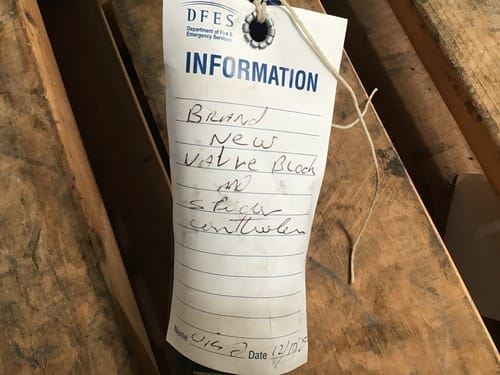 DFES
Department of Fire &
Emergency Services
INFORMATION
BRAND
New
VALVE Block
AND
controllers
Name Date 12/10/